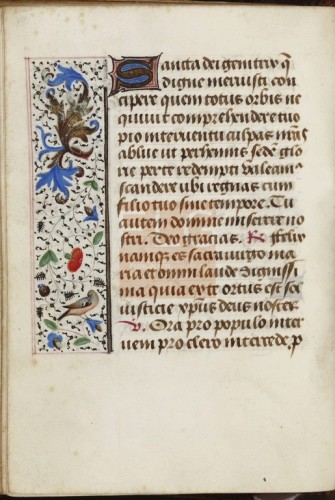 Sancta dei genitrix q̄
digne meruisti con
cipere quem totus orbis ne
quiuit comprehendere tuo
pio interuentu culpas nr̄as
ablue ut perhennis sedē glo
rie per te redempti valeam̄
scandere ubi regnas cum
filio tuo sine tempore. Tu
autem domine miserere no
stri. Deo gracias. R̃ Felix
namque es sacra uirgo ma
ria et omni laude dignissi
ma quia ex te ortus est sol
iusticie xp̄us deus noster
v̄. Ora pro populo inter
ueni pro clero intercede. p